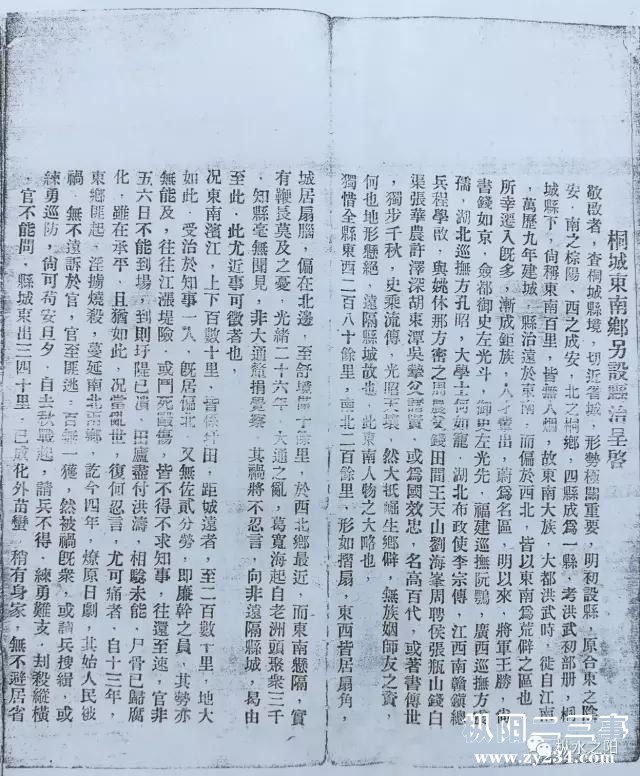 桐城東南鄉另設縣治呈啓
敬啟者．查桐城縣境．切近省城．形勢極關重要．明初設縣．原合東之陰
安．南之樅陽．西之成安．北之桐鄉．四縣成爲一縣．考洪武初部册．桐
城縣下．尙稱東南百里．皆無人烟．故東南大族．大都洪武時．徙自江南
．萬歷九年建城．縣治遠於東南．而偏於西北．皆以東南爲荒僻之區也．
所幸遷入旣多．漸成鉅族．人才輩出．蔚爲名區．明以來．將軍王勝．尙
書錢如京．僉都御史左光斗．御史左光先．福建巡撫阮鶚．廣西巡撫方
孺．湖北巡撫方孔炤．大學士何如寵．湖北布政使李宗傳．江西南贛鎭總
兵程學啟．與姚休那方密之周農父錢田間王天山劉海峯周聘侯張瓶山錢白
渠張華農許澤深胡東潭吳摯父諸賢．或爲國效忠．名高百代．或著書傳世
．獨步千秋．史乘流傳．光照天壤．然大抵崛生鄉僻．無族姻師友之資．
何也地形懸絕．遠隔縣城故也．此東南人物之大略也．
獨惜全縣東西二百八十餘里．南北二百餘里．形如摺扇．東西皆居扇角．
城居扇腦．偏在北邊．至舒城　十餘里．於西北鄉最近．而東南懸隔．實
有鞭長莫及之憂．光緒二十六年．大通之亂．葛寬海起自老洲頭聚衆三千
．知縣毫無聞見．非大通釐捐覺察．其禍將不忍言．向非遠隔縣城．曷由
至此．此尤近事可徵者也．
况東南濱江．上下百數十里．皆係圩田．距城遠者．至二百數十里．地大
如此．受治於知事一人．旣居偏北．又無佐貳分勞．即廉幹之員．其勢亦
無能及．往往江漲堤險．或鬥死毆傷．皆不得不求知事．往還至速．官非
五六日不能到場．到則圩隄已潰．田廬盡付洪濤．相驗未能．尸骨已歸腐
化．雖在承平．且猶如此．况當亂世．復何忍言．尤可痛者．自十三年．
東鄉匪起．淫擄燒殺．蔓延南北兩鄉．訖今四年．燎原日劇．其始人民被
禍．無不遠訴於官．官至匪逃．百無一獲．然被禍旣衆．或請兵搜緝．或
練勇巡防．尙可苟安旦夕．自去秋戰起．請兵不得．練勇難支．刦殺縱橫
．官不能問．縣城東出三四十里．已成化外苗蠻．稍有身家．無不避居省
枞阳二三事
枞水之阳
www.zy234.com